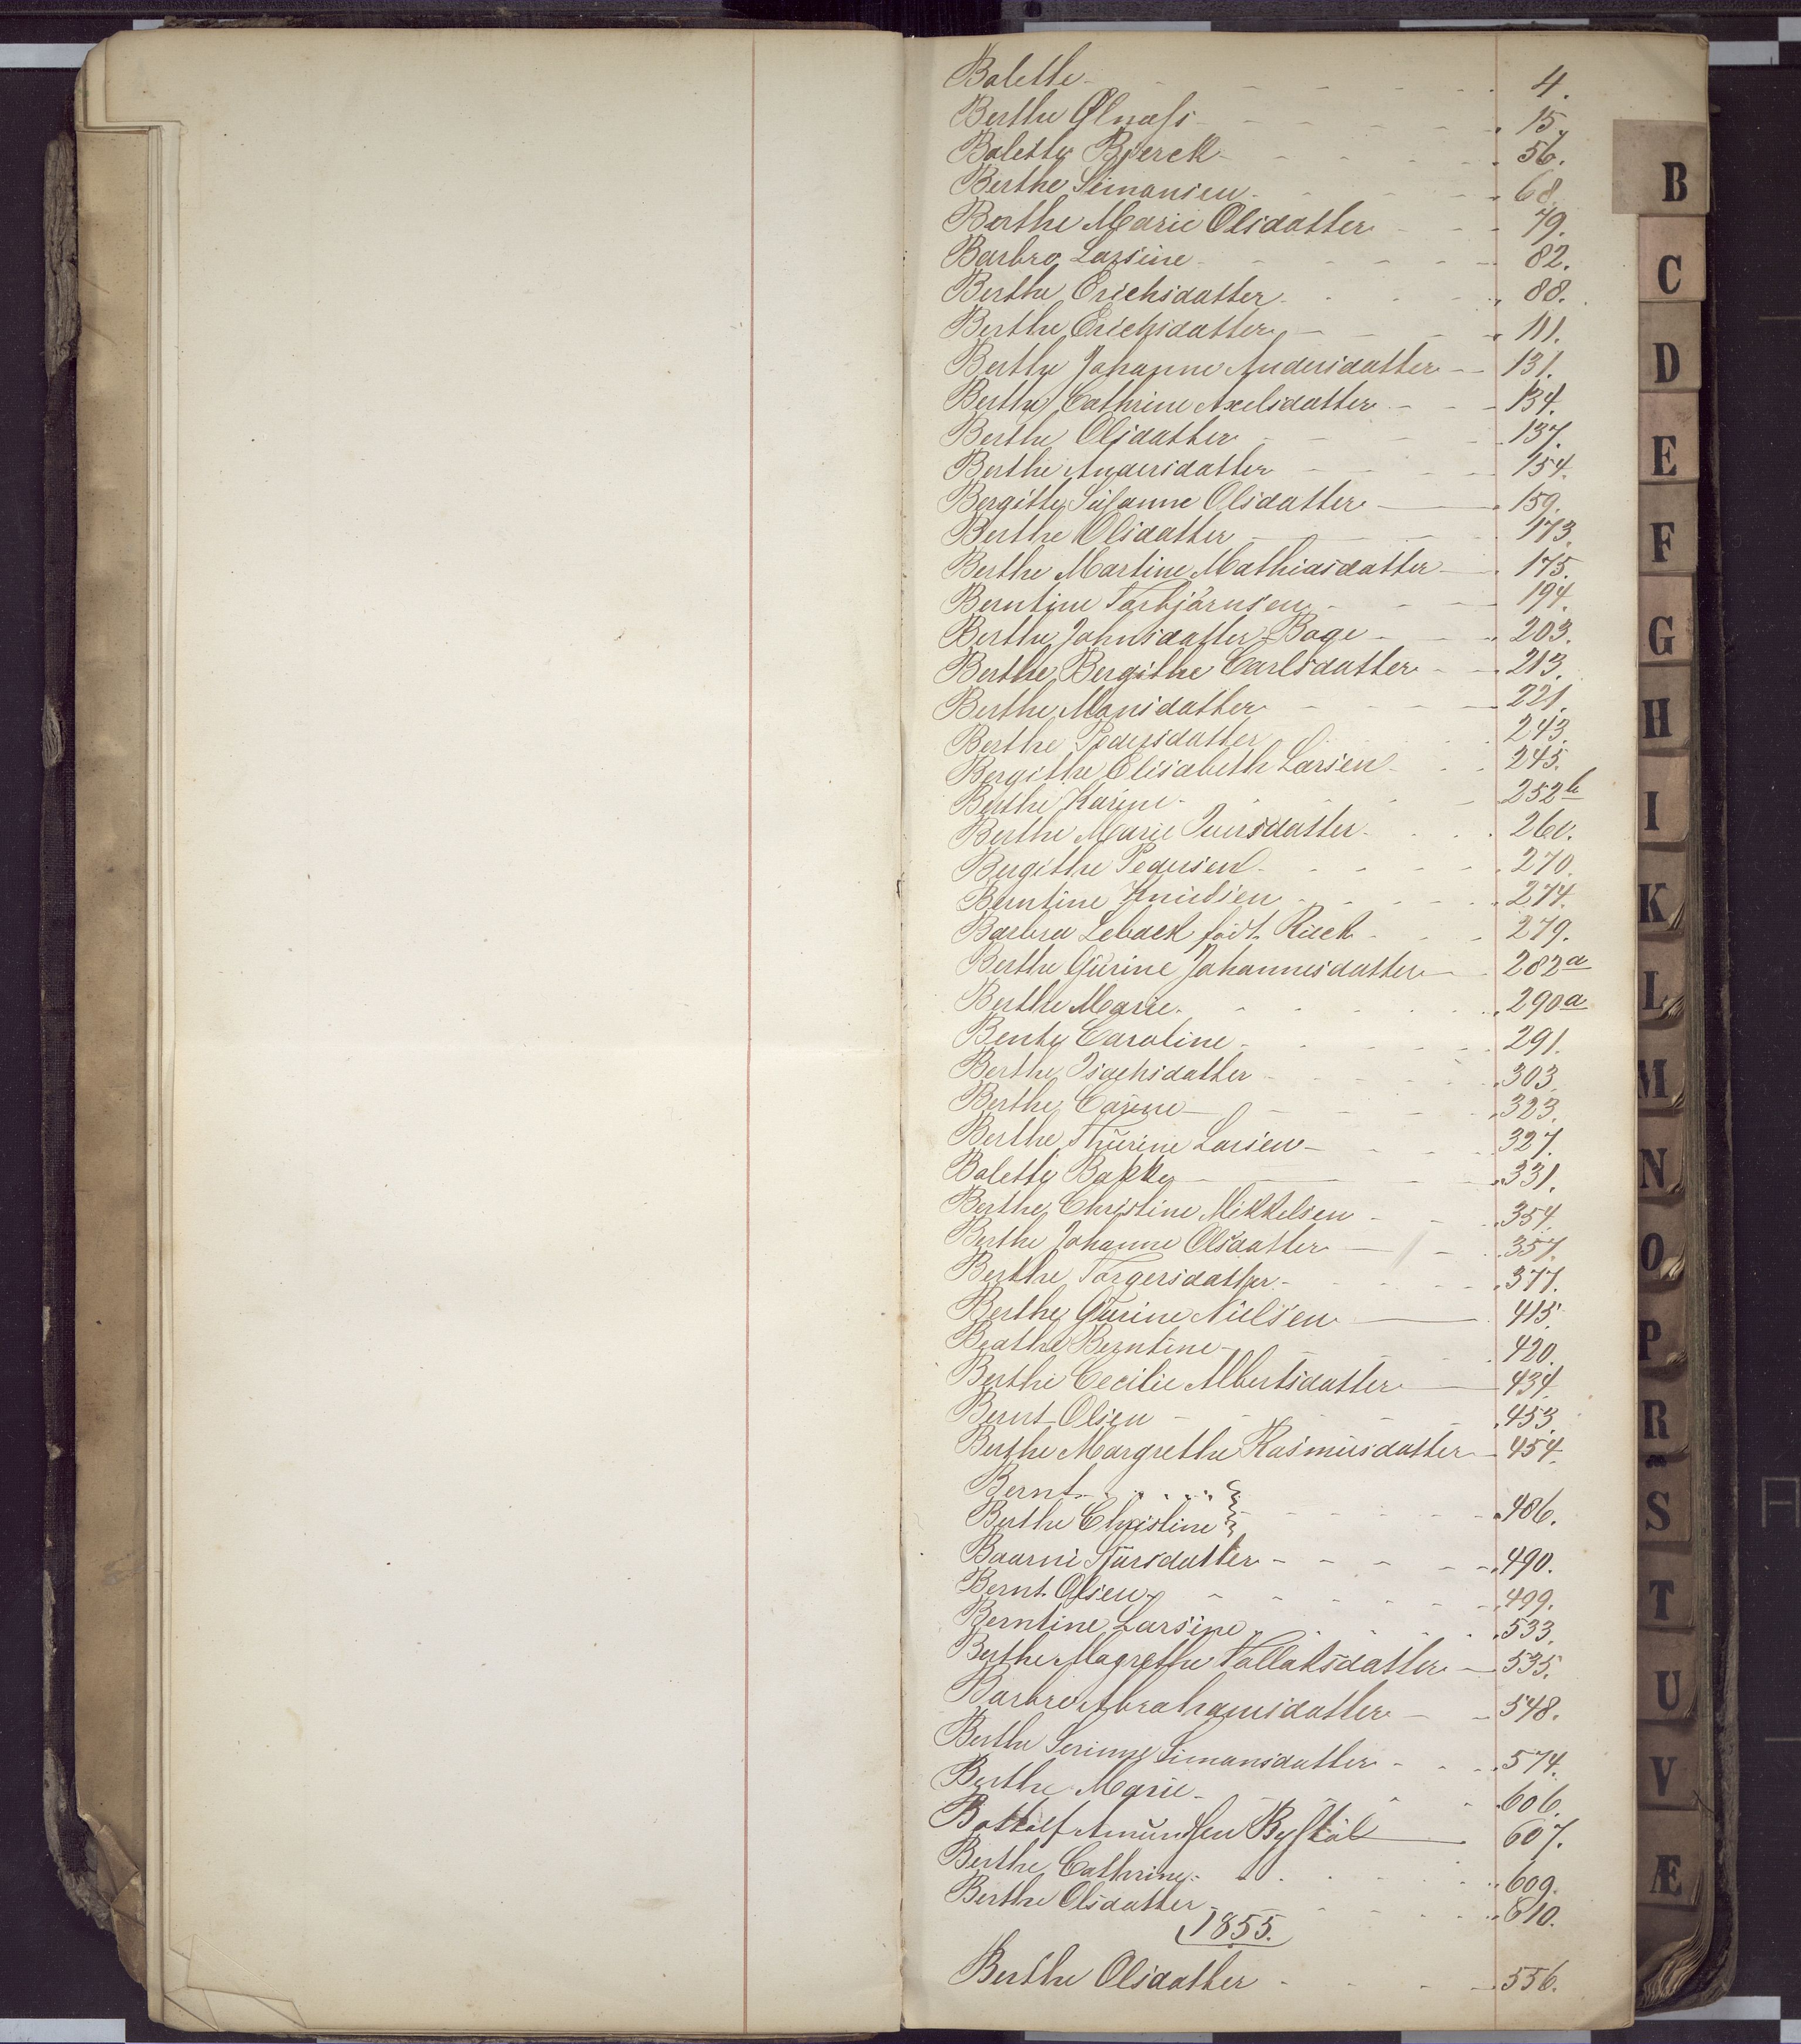 Bolette 4.
Berthe Ølnæss 15.
Bolette Bjerck 56.
Berthe Simonsen 68.
Berthe Marie Olsdatter 79.
Barbro Larsine 82.
Berthe Erichsdatter 88.
Berthe Erichsdatter 111.
Berthe Johanne Andersdatter 131.
Berthe Cathrine Axelsdatter 134.
Berthe Olsdatter 137.
Berthe Andersdatter 154.
Bergitte Susanne Olsdatter 159.
Berthe Olsdatter 173.
Berthe Martine Mathiasdatter 175.
Berntine Torbjörnsen 194.
Berthe Johnsdatter Boge 203.
Berthe Bergithe Carlsdatter 213.
Berthe Monsdatter 221.
Berthe Pedersdatter 243.
Bergithe Elisabeth Larsen 245.
Berthe Karine 252b
Berthe Marie Iversdatter 260.
Bergithe Pedersen 270.
Berntine Knudsen 274.
Barbra Leback födt Rieck 279.
Berthe Gurine Johannesdatter 282a
Berthe Marie 290a
Bente Caroline 291.
Berthe Isachsdatter 303.
Berthe Carine 323.
Berthe Thurine Larsen 327.
Bolette Bakke 331.
Berthe Christine Mikkelsen 354.
Berthe Johanne Olsdatter 357.
Berthe Torgersdatter 377.
Berthe Gurine Nielsen 415.
Beathe Berntine 420.
Berthe Cecilie Albertsdatter 434.
Bernt Olsen 453.
Berthe Margrethe Rasmusdatter 454.
Bernt
Berthe Christine 486.
Baarni 490.
Bernt Olsen 499.
Berntine Larsine 533.
Berthe Magrethe Tollaksdatter 535.
Barbro Abrahamsdatter 548.
Berthe Serinne Simonsdatter 574.
Berthe Marie 606.
Bottolf Amundsen 607.
Berthe Cathrine 609.
Berthe Olsdatter 610.
1855.
Berthe Olsdatter 556.
B
C
D
E
F
G
H
I
K
L
M
N
O
P
R
S
T
U
V
Æ